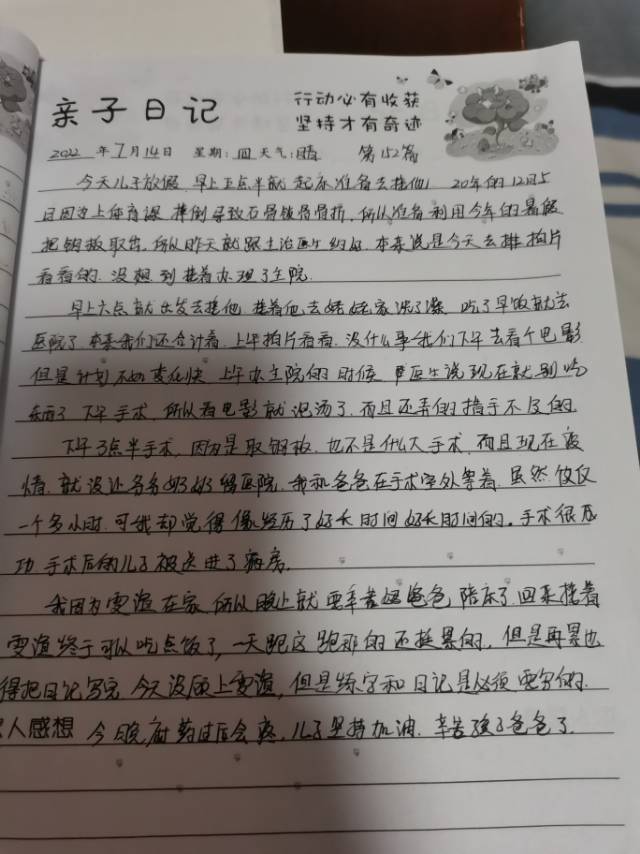 亲子日记
行动必有收获
坚持才有奇迹
2022 年 7 月 14 日 星期: 四 天气: 晴 第 152 篇
今天儿子放假 早上五点半就起床准备去接他! 20年的12月5
日因为上体育课 摔倒导致右骨锁骨骨折, 所以准备利用今年的暑假
把钢板取出, 所以昨天就跟主治医生约好, 本来说是今天去推拍片
看看的. 没想到接着办理了住院.
早上六点就出发去接他 接着他去姥姥家洗了澡 吃了早饭就去
医院了 本来我们还合计着, 上午拍片看看, 没什么事我们下午去看个电影
但是计划不如变化快 上午办主院的时候 医生说现在就别吃
东西了 下午手术, 所以看电影就泡汤了, 而且还弄的措手不及的.
下午3点半手术, 因为是取钢板, 也不是什么大手术, 而且现在疫
情, 就没让爷爷奶奶跟医院, 我和爸爸在手术室外等着, 虽然仅仅
一个多小时, 可我却觉得像经历了好长时间好长时间的。手术很成
功 手术后的儿子被送进了病房.
我因为要渲在家, 所以晚上就要辛苦爸爸陪床了, 回来接着
要渲终于可以吃点饭了, 一天跑这跑那的还挺累的, 但是再累也
得把日记写完 今天没顾上要渲, 但是练字和日记是必须要写的.
人感想 今晚麻药过后会疼, 儿子坚持加油. 辛苦孩子爸爸了.